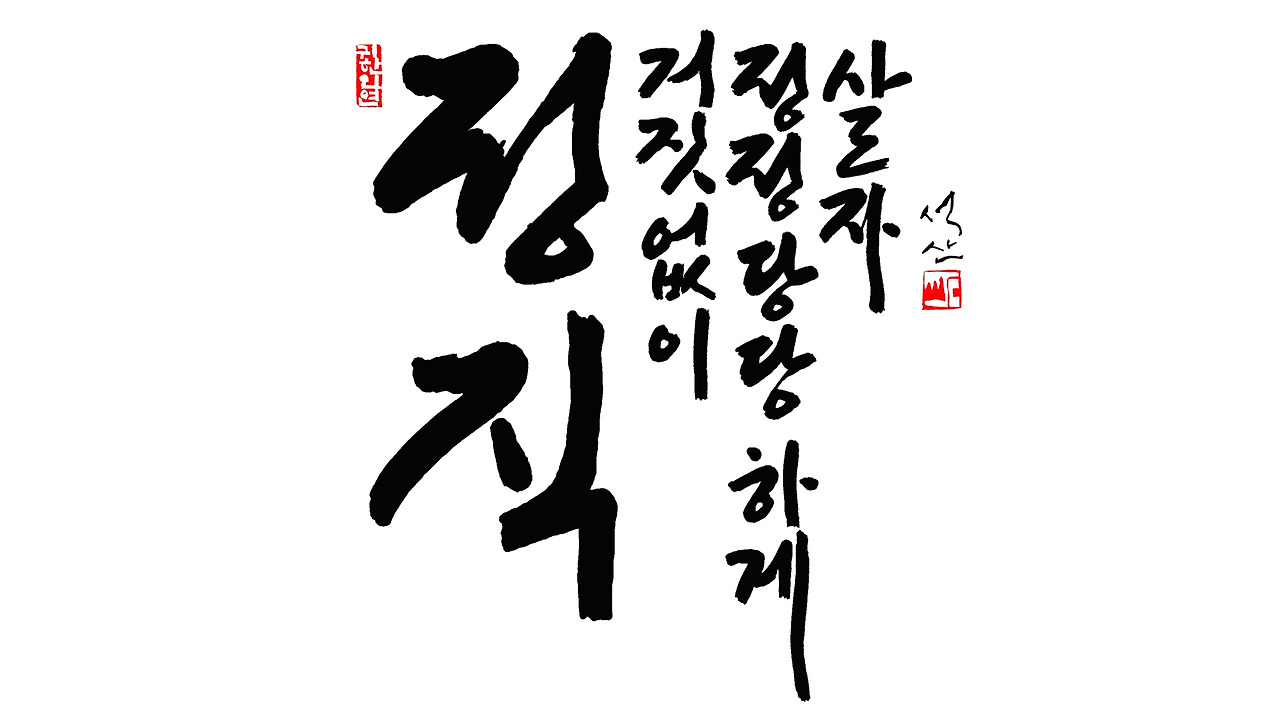 정직
거짓없이
정정당당하게
살자
석산